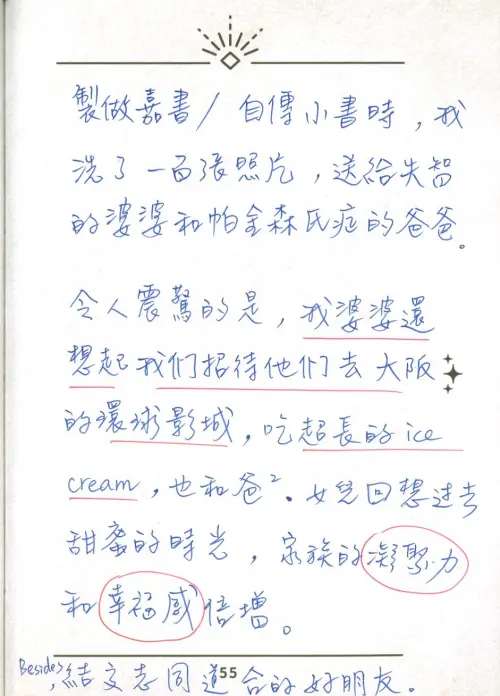 製做嘉書/自傳小書時，我
洗了一百張照片，送給失智
的婆婆和帕金森氏症的爸爸。
令人震驚的是，我婆婆還
想起我们招待他们去大阪
的環球影城，吃超長的ice
cream，也和爸²。女兒回想过去
甜蜜的時光，家族的凝聚力
和幸福感倍增。
Besides，結交志同道合的好朋友。
55